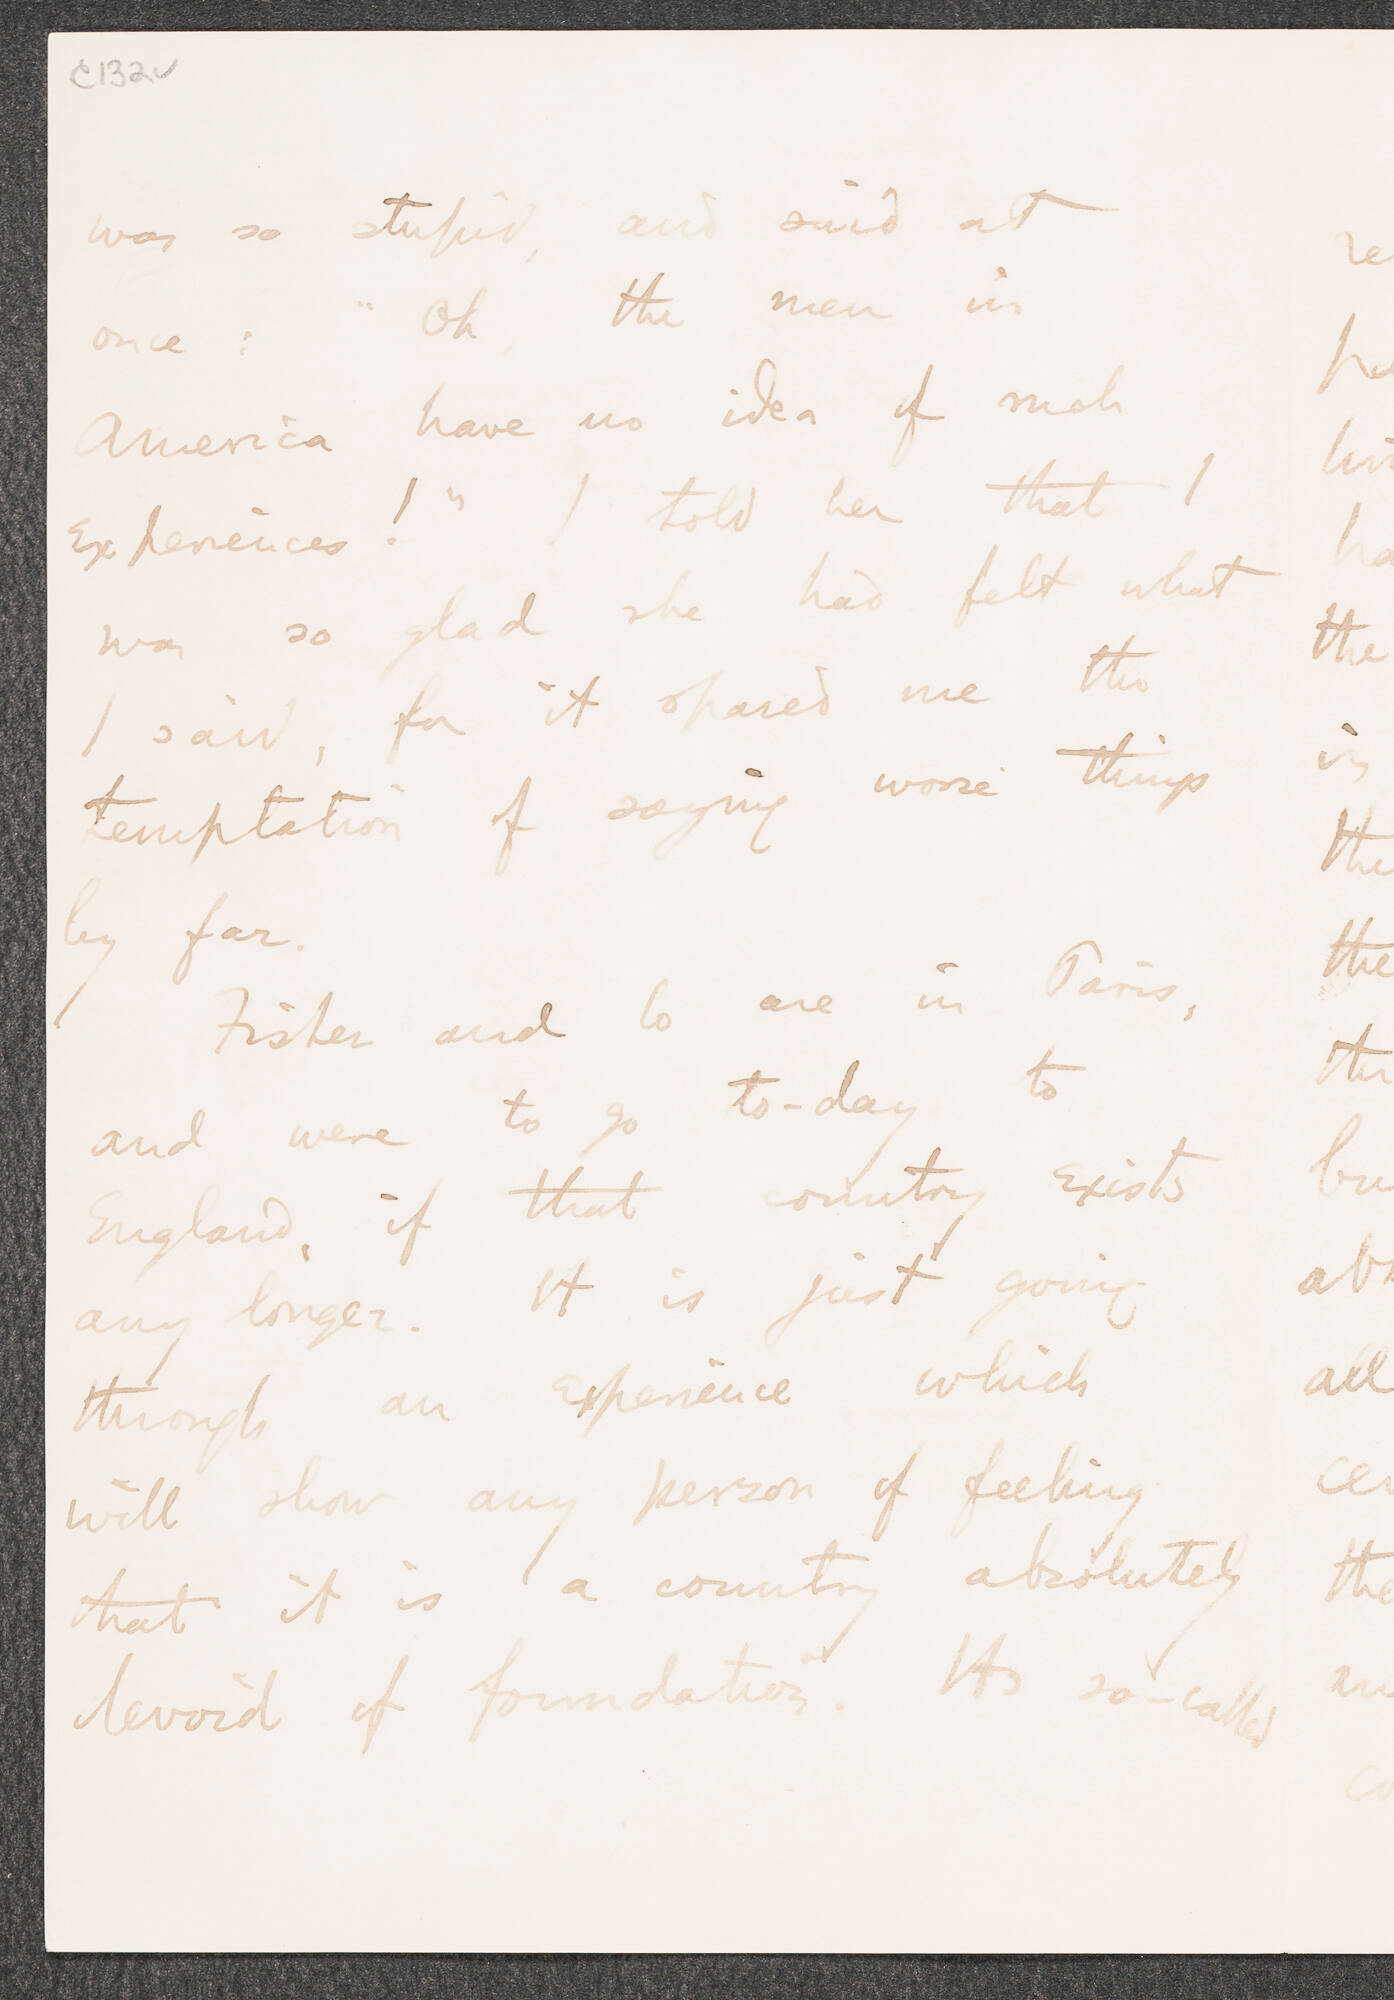 C132v
was so stupid, and said at
once: "Oh, the men in
America have no idea of such
experiences!" I told her that I
was so glad she had felt what
I said, for it spared me the
temptation of saying worse things
by far.
Fisher and Co are in Paris,
and were to go to-day to
England, if that country exists
any longer. It is just going
through an experience which
will show any person of feeling
that it is a country absolutely
devoid of foundation. Its so-called
the
in
the
the
all